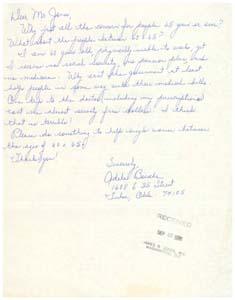 Dear Mr. Jones,
Why just all the concern for people 65 years or over?
What about the people between 60 & 65?
I am 62 years old, physically unable to work, yet
I receive no social security, no pension plans and
no medicare. Why can't the government at least
help people in some way with their medical bills
One trip to the doctor including my prescriptions
cost me almost seventy five dollars. I think
that is terrible!
Please do something to help single women between
the ages of 60 & 65!
Thank You!
Sincerely,
1608 E 35 Street
Tulsa, Okla. 74105
RECEIVED